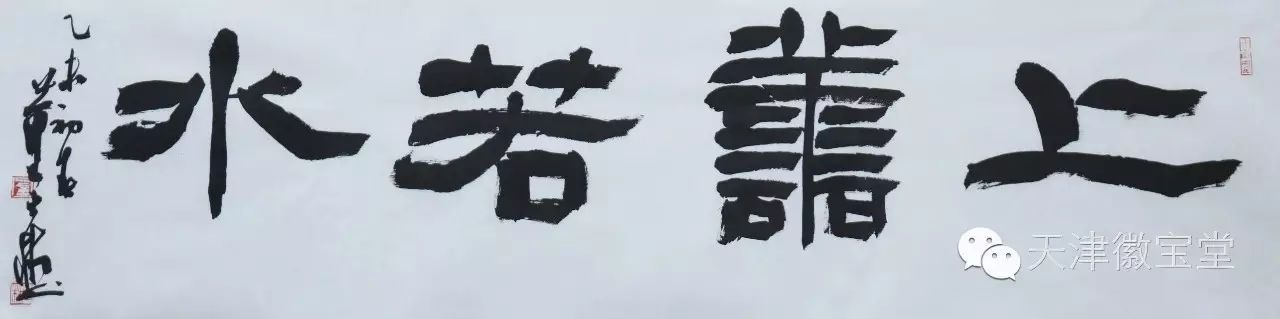 上譱若水
乙未初春
天津徽宝堂